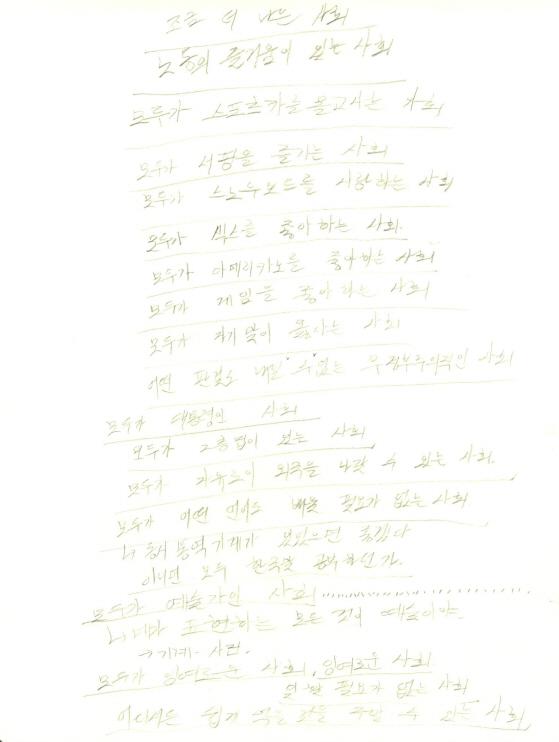 조금 더 나은 사회
노동의 즐거움이 있는 사회
모두가 스포츠카를 몰고사는 사회
모두가 서핑을 즐기는 사회
모두가 스노우보드를 사랑하는 사회
모두가 섹스를 좋아하는 사회.
모두가 아메리카노를 좋아하는 사회
모두가 게임을 좋아하는 사회
모두가 자기 맘이 사는 사회
어떤 판결도 내릴 수 없는 무정부주의적인 사회
모두가 대통령인 사회
모두가 고층빌이 있는 사회
모두가 자유로이 외국을 나갈 수 있는 사회.
모두가 어떤 언어도 배울 필요가 없는 사회
동시통역기계가 있었으면 좋겠다
아니면 모두 한국말 공부하던가.
모두가 예술가인 사회
내가 표현하는 모든 것이 예술이야.
→ 기계 사람.
모두가 잉여로운 사회, 잉여로운 사회
일할 필요가 없는 사회
어디서든 쉽게 먹을 것을 구할 수 있는 사회